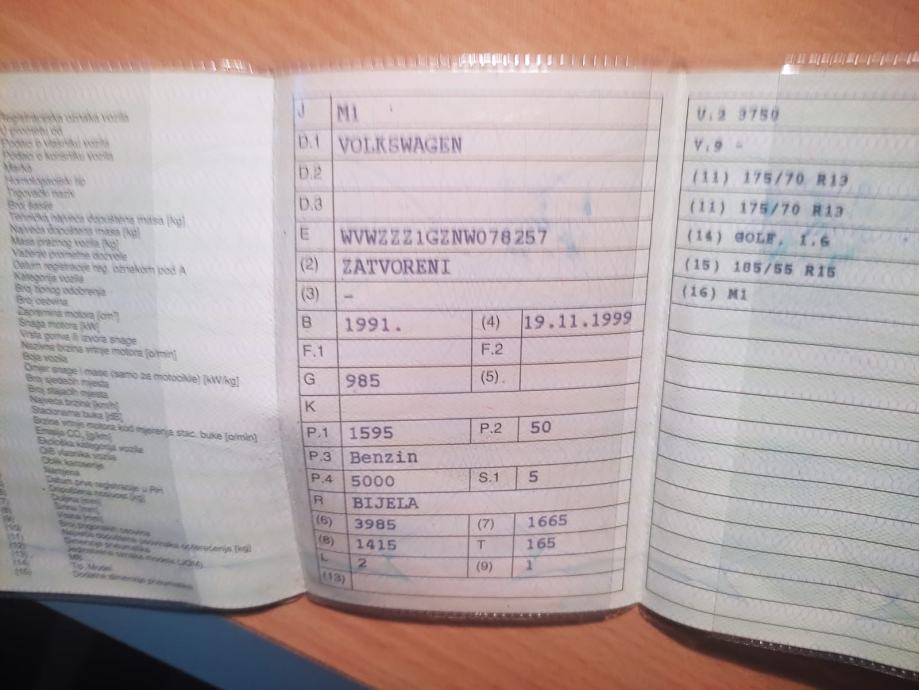 Registracijska oznaka vozila
U prometu od
Podaci o vlasniku vozila
Podaci o korisniku vozila
Marka
Homologacijski tip
Trgovački naziv
Broj šasije
Tehnička najveća dopuštena masa [kg]
Najveća dopuštena masa [kg]
Masa praznog vozila [kg]
Važenje prometne dozvole
Datum registracije reg. oznakom pod A
Kategorija vozila
Broj tipnog odobrenja
Broj osovina
Zapremina motora [cm³]
Snaga motora [kW]
Vrsta goriva ili izvora snage
Nazivna brzina vrtnje motora [o/min]
Boja vozila
Omjer snage i mase (samo za motocikle) [kW/kg]
Broj sjedećih mjesta
Broj stajaćih mjesta
Najveća brzina [km/h]
Stacionarna buka [dB]
Brzina vrtnje motora kod mjerenja stac. buke [o/min]
Emisija CO₂ [g/km]
Ekološka kategorija vozila
OIB vlasnika vozila
Oblik karoserije
Namjena
Datum prve registracije u RH
Dopuštena nosivost [kg]
Duljina [mm]
Širina [mm]
Visina [mm]
Broj pogonskih osovina
J M1
D.1 VOLKSWAGEN
D.2
D.3
E WVWZZZ1GZNW078257
(2) ZATVORENI
(3) –
B 1991. (4) 19.11.1999
F.1 F.2
G 985 (5)
K
P.1 1595 P.2 50
P.3 Benzin
P.4 5000 S.1 5
R BIJELA
(6) 3985 (7) 1665
(8) 1415 T 165
L 2 (9) 1
(13)
U.2 3750
V.9 -
(11) 175/70 R13
(11) 175/70 R13
(14) GOLF, 1.6
(15) 185/55 R15
(16) M1